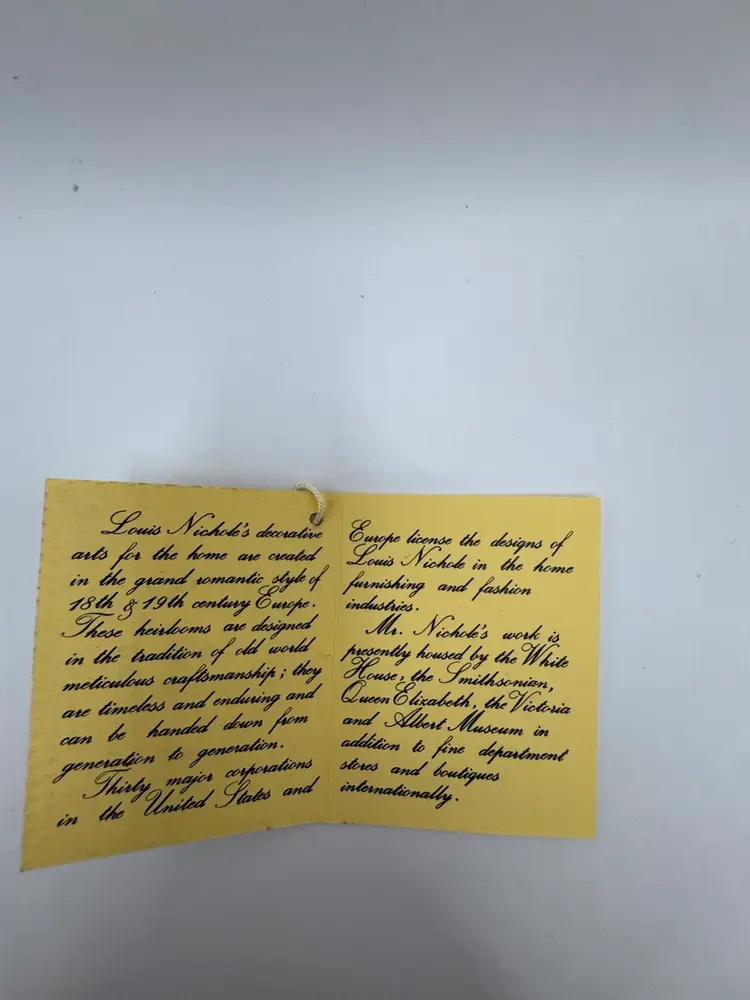 Louis Nichole's decorative
arts for the home are created
in the grand romantic style of
18th & 19th century Europe.
These heirlooms are designed
in the tradition of old world
meticulous craftsmanship; they
are timeless and enduring and
can be handed down from
generation to generation.
Thirty major corporations
in the United States and
Europe license the designs of
Louis Nichole in the home
furnishing and fashion
industries.
Mr. Nichole's work is
presently housed by the White
House, the Smithsonian,
Queen Elizabeth, the Victoria
and Albert Museum in
addition to fine department
stores and boutiques
internationally.